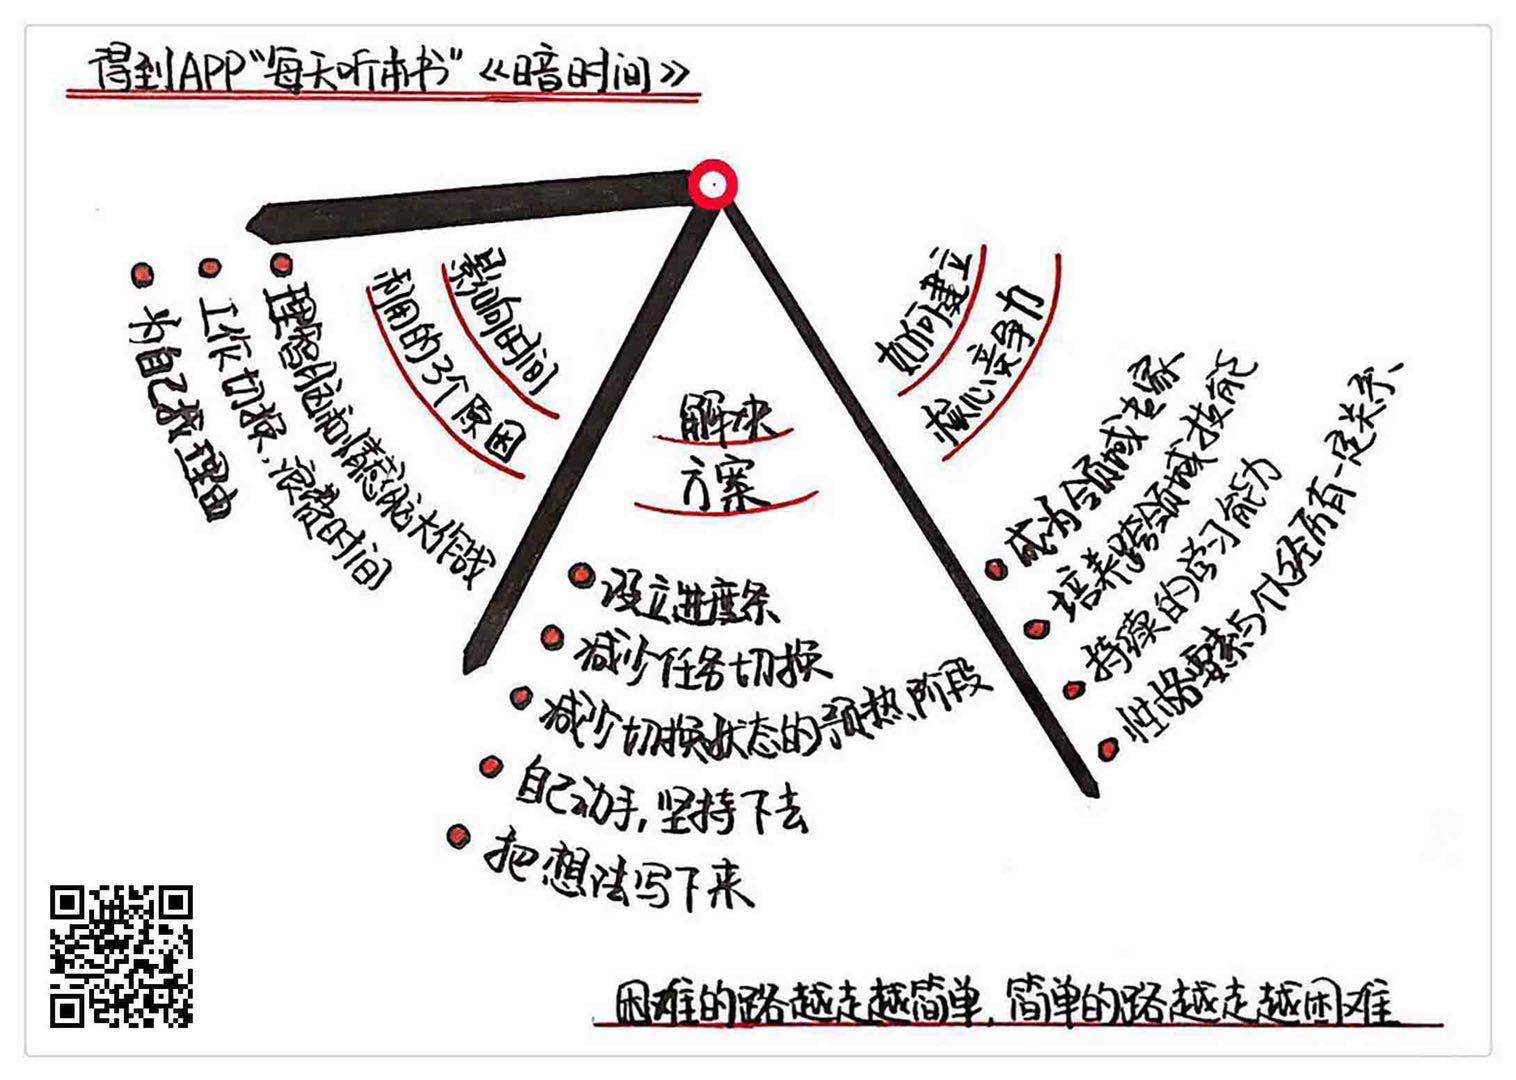 得到APP“每天听本书”《暗时间》
影响时间
利用的3个原因
理智脑和情感脑大作战
工作切换,浪费时间
为自己找理由
解决
方案
设立进度条
减少任务切换
减少切换状态的预热阶段
自己动手,坚持下去
把想法写下来
如何建立
核心竞争力
成为领域专家
培养跨领域技能
持续的学习能力
性格要素与个人经历有一定关系
困难的路越走越简单,简单的路越走越困难